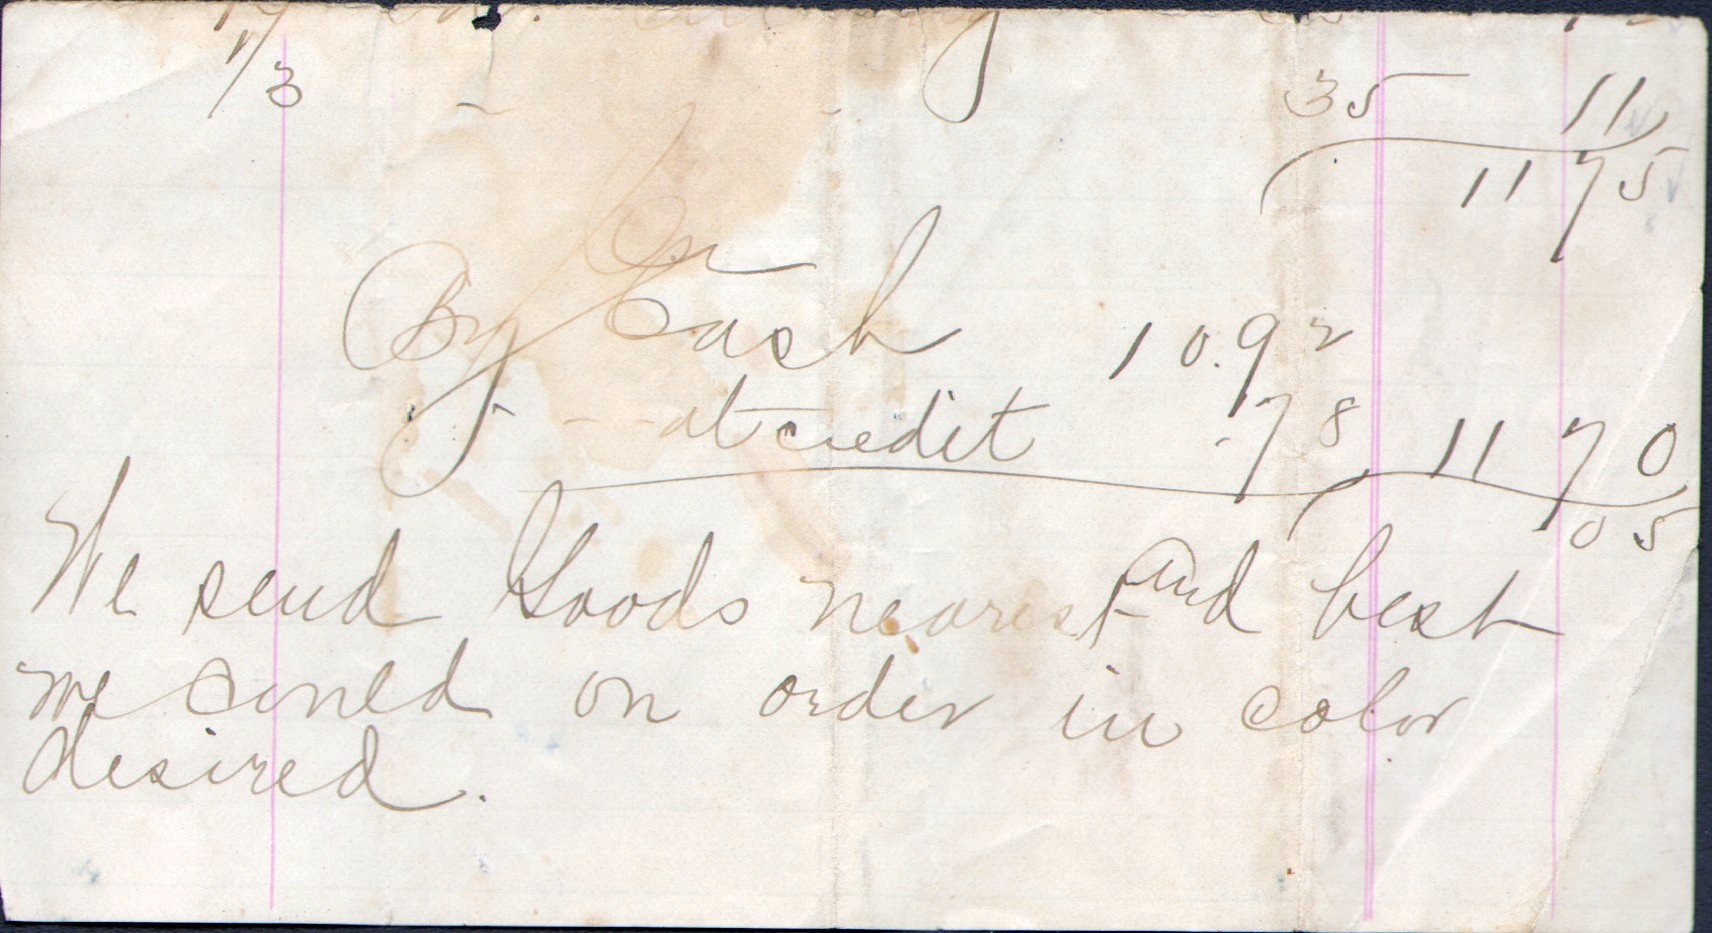 1/3 " " 35 11
11 75
Cr
By Cash 10.92
" " at credit .78 11 70
05
We send Goods nearest and best
we could on order in color
desired.